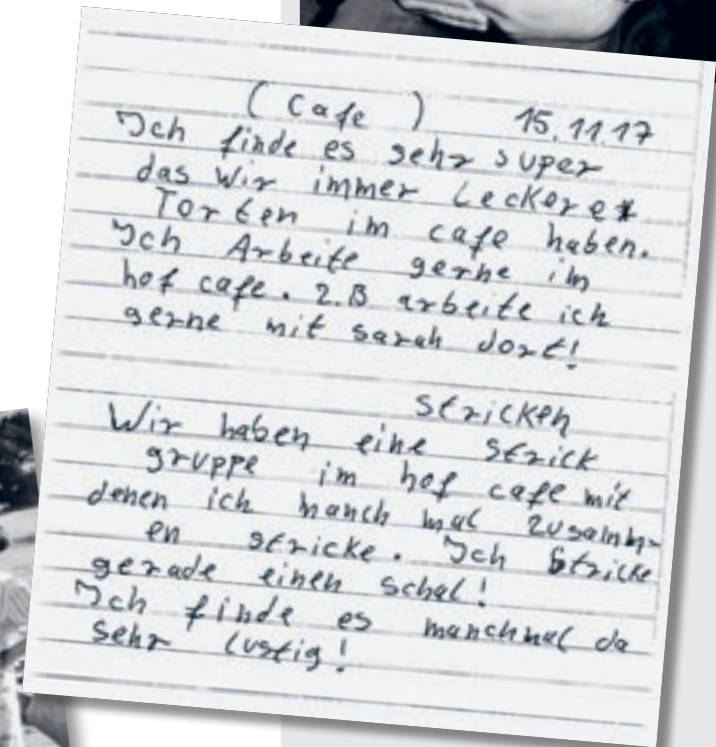 ( Cafe ) 15.11.17
Ich finde es sehr super
das Wir immer Leckere*
Torten im cafe haben.
Ich Arbeite gerne im
hof cafe. z.B arbeite ich
gerne mit sarah dort!
stricken
Wir haben eine strick
gruppe im hof cafe mit
denen ich manch mal zusamm-
en stricke. Ich Stricke
gerade einen schal!
Ich finde es manchmal da
sehr lustig!